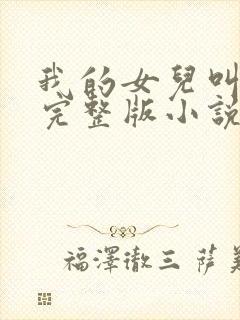 我的女兒叫
完整版小說
福澤徹三 薩